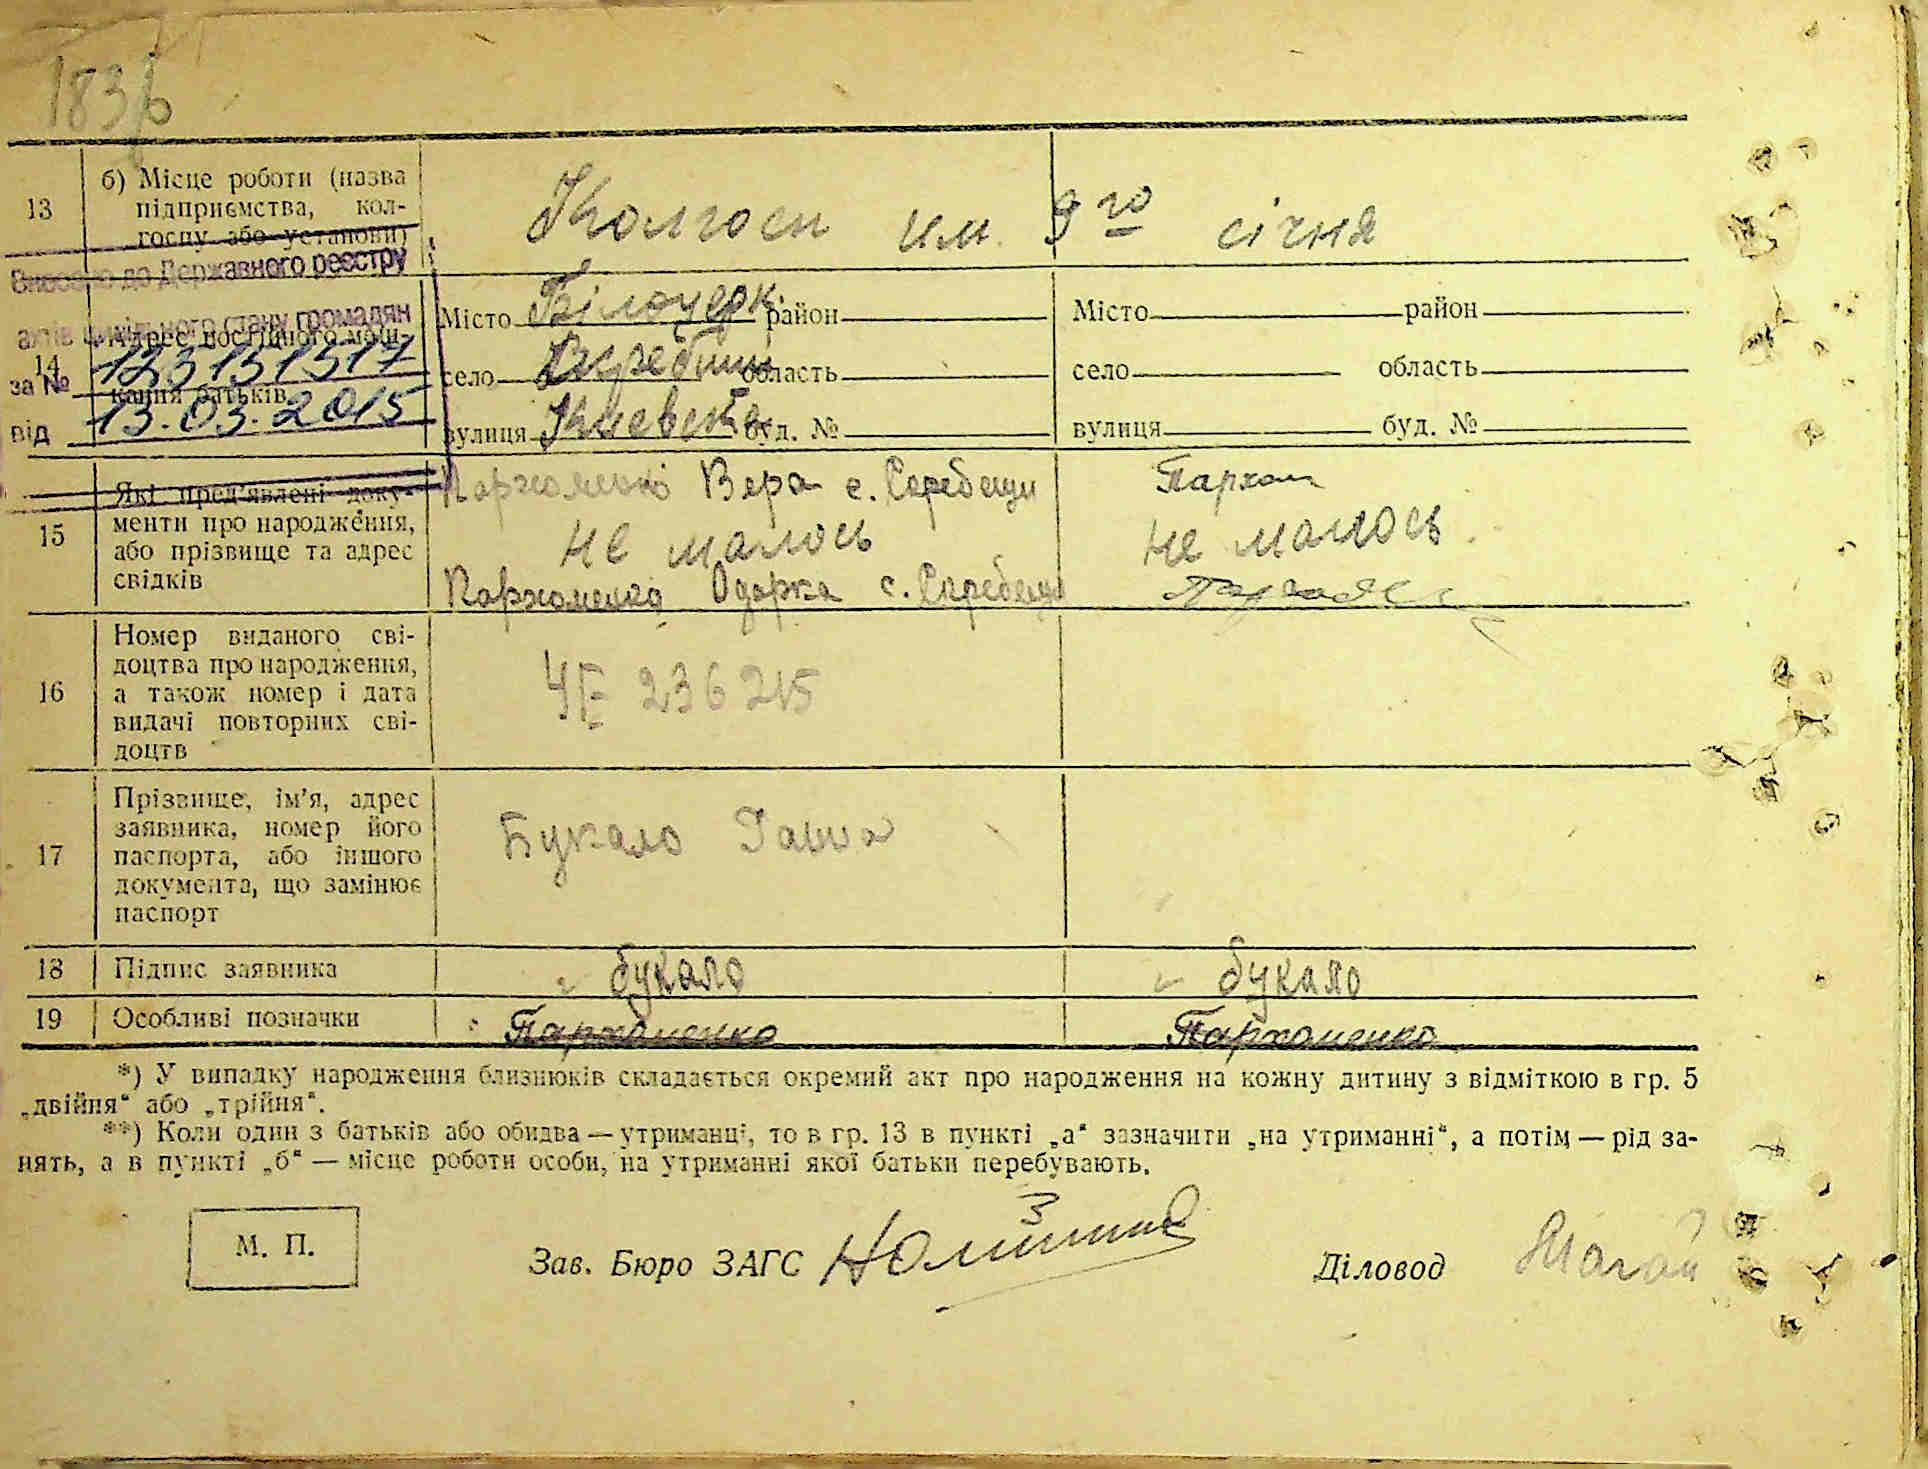 183
13 б) Місце роботи (назва підприємства, кол-госпу або установи) Колгосп им. 9го січня
Внесено до Державного реєстру
актів цивільного стану громадян
за № 123151517
від 13.03.2015
14 Адрес постійного меш-кання батьків
Місто Білоцерк район Місто район
село область село область
вулиця Киевска буд. № вулиця буд. №
15 Які пред'явлені доку-
менти про народження,
або прізвище та адрес
свідків
Пархоменко Вера с. Скребиши Пархом
не малось не малось.
Пархоменко Одарка с. Скребиши
16 Номер виданого сві-
доцтва про народження,
а також номер і дата
видачі повторних сві-
доцтв
ЧЕ 236215
17 Прізвище, ім'я, адрес
заявника, номер його
паспорта, або іншого
документа, що замінює
паспорт
Букало Ганна
18 Підпис заявника букало букало
19 Особливі позначки Пархоменко Пархоменко
*) У випадку народження близнюків складається окремий акт про народження на кожну дитину з відміткою в гр. 5
„двійня“ або „трійня“.
**) Коли один з батьків або обидва — утриманці, то в гр. 13 в пункті „а“ зазначити „на утриманні“, а потім — рід за-
нять, а в пункті „б“ — місце роботи особи, на утриманні якої батьки перебувають.
М. П. Зав. Бюро ЗАГС Діловод